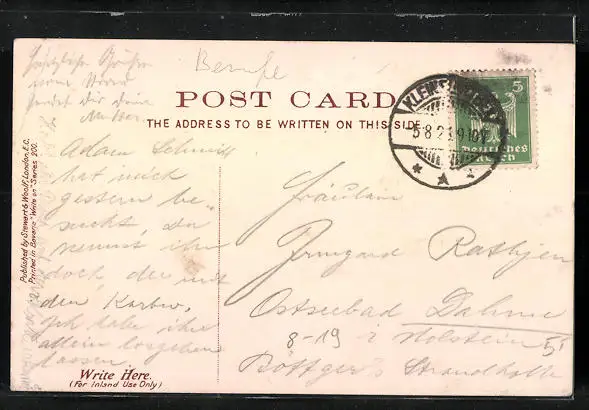 Herzliche Grüße
vom Strand
sendet Dir Deine
Berufe
POST CARD
THE ADDRESS TO BE WRITTEN ON THIS SIDE
KLEIN
5 8 2
9-10
A
5
Deutsches
Reich
Published by Stewart & Woolf, London, E.C.
Printed in Bavaria "Write on" Series 200.
Adam Schmitt
hat mich
gestern be-
sucht, du
kennst ihn
doch, der mit
den Karten,
Ich habe ihn
allein losgehen
lassen.
Write Here.
(For Inland Use Only)
Fräulein
Irmgard Rathjen
Ostseebad Dahme
8-19 i Holstein
Böttger's Strandhotel